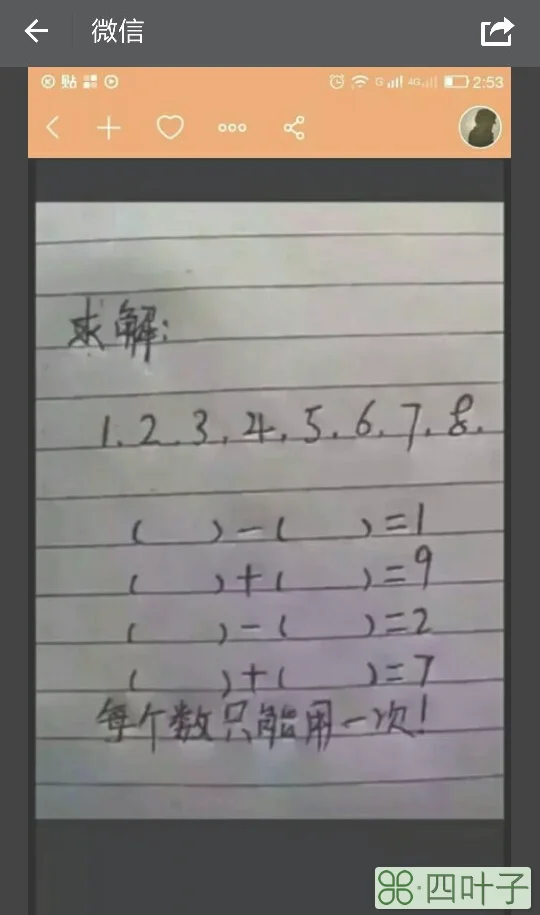 微信
贴
G
4G
2:53
求解:
1.2.3.4.5.6.7.8.
( )-( )=1
( )+( )=9
( )-( )=2
( )+( )=7
每个数只能用一次!
四叶子